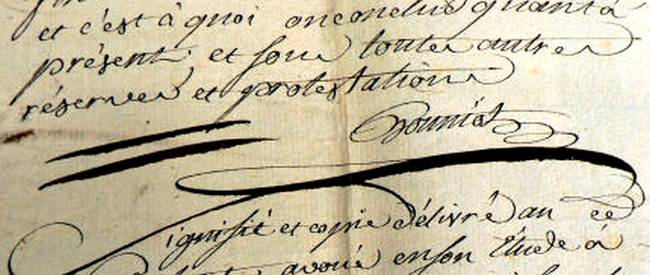 et c'est à quoi on conclud quant à
présent et sous toutes autres
réserves et protestations
Signifié et copie délivré au
avoué en son Étude à